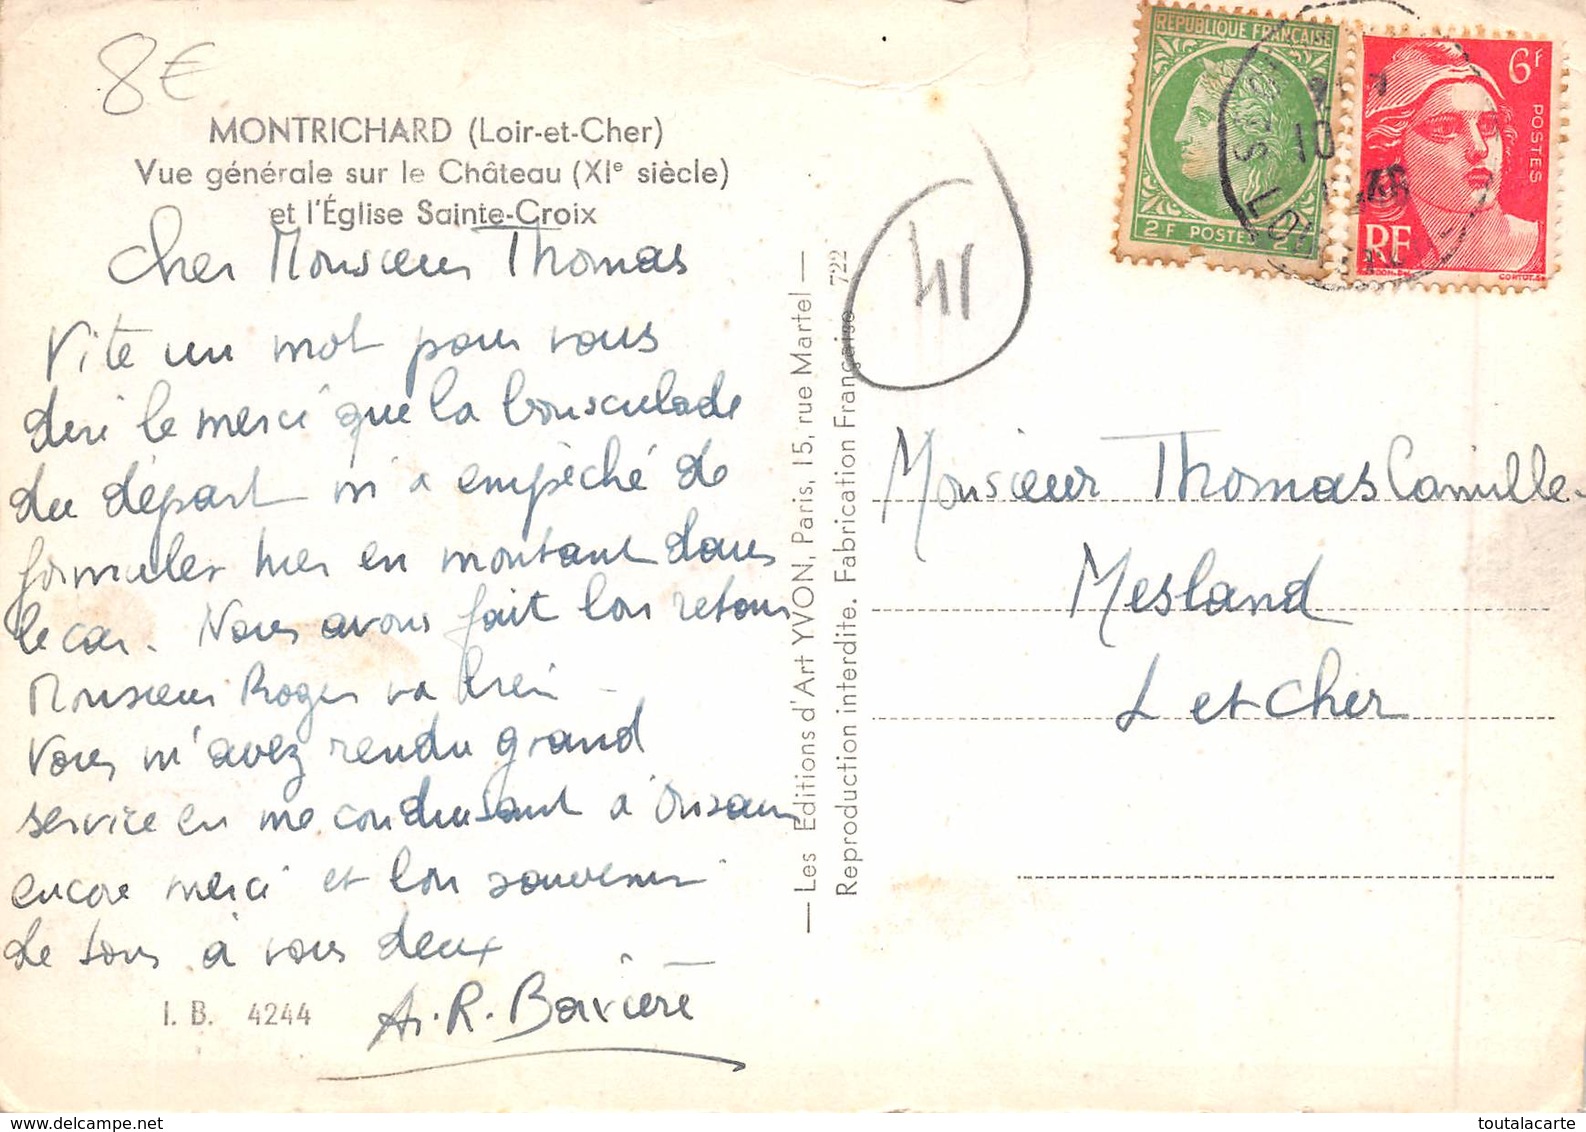 8€
MONTRICHARD (Loir-et-Cher)
Vue générale sur le Château (XIe siècle)
et l'Église Sainte-Croix
Cher Monsieur Thomas
Vite un mot pour vous
dire le merci que la bousculade
du départ m'a empêché de
formuler hier en montant dans
le car. Nous avons fait bon retour
Monsieur Roger va bien
Vous m'avez rendu grand
service en me conduisant à Onzain
encore merci et bon souvenir
de tous à vous deux
A. R. Bavière
I. B. 4244
— Les Editions d'Art YVON, Paris, 15, rue Martel —
Reproduction interdite. Fabrication Française 722
41
RÉPUBLIQUE FRANÇAISE
2F POSTES 2F
6F
POSTES
RF
10
Monsieur Thomas Camille
Mesland
L et Cher
toutalacarte